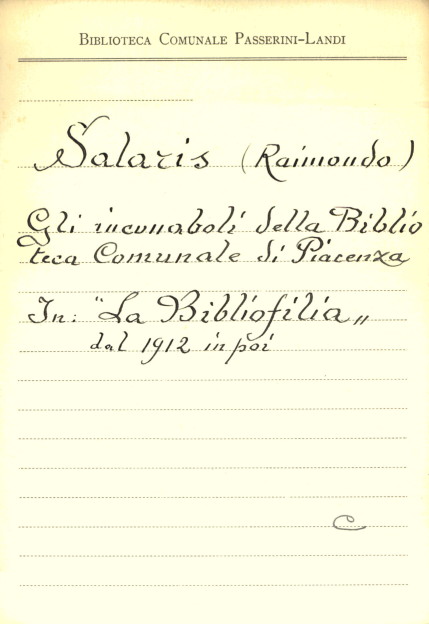 Biblioteca Comunale Passerini-Landi
Salaris (Raimondo)
Gli incunaboli della Biblio
teca Comunale di Piacenza
In: "La Bibliofilia„
dal 1912 in poi
C